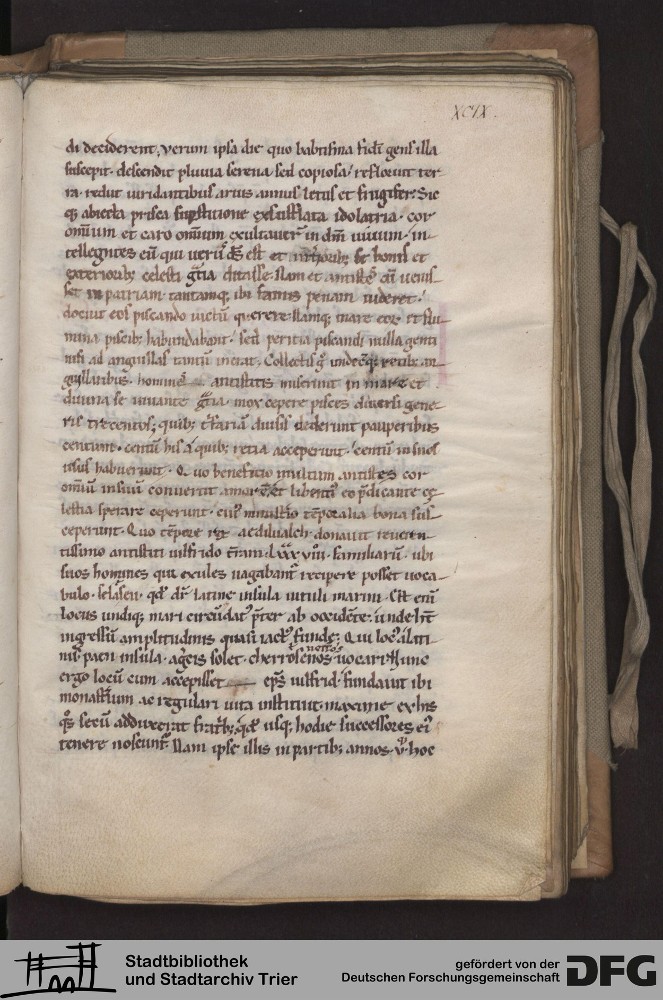 XCIX.
di deciderent, verum ipsa die quo babtisma fidei gens illa
suscepit. descendit pluvia serena sed copiosa. refloruit ter
ra. rediit viridantibus arvis annus letus et frugifer. Sic
q; abiecta prisca supstitione exsufflata idolatria. cor
omniū et caro omniū exultaverunt in dm̄ vivum. in
tellegentes eū qui verꝰ ds̄ est et interioribꝫ se bonis et
exterioribꝫ celesti grā ditasse. Nam et antistes cū venis
set in patriam tantamq; ibi famis penam videret.
docuit eos piscando victū querere. Namq; mare eorū et flu
mina piscibꝫ habundabant. sed peritia piscandi nulla genti
nisi ad anguillas tantū inerat. Collectis g̊ undecūq; retibꝫ an
guillaribus. homines antistitis miserunt in mare et
divina se iuvante grā mox cepere pisces diversi gene
ris trecentos; quibꝫ trifariā divisis dederunt pauperibus
centum. centū his a quibꝫ retia acceperunt. centū in suos
usus habuerunt. Quo beneficio multum antistes cor
omniū in suū convertit amorē, et libentiꝰ eo p̄dicante ce
lestia sperare ceperunt. cuiꝰ ministerio tēporalia bona sus
ceperunt. Quo tēpore rex aedilualch donavit reveren
tissimo antistiti uilfrido terram. LXXXVII. familiarū. ubi
suos homines qui exules vagabantur recipere posset voca
bulo. selaseu. qd̄ dr̄ latine insula vituli marini. Est enī
locus undiq; mari circūdatꝰ p̄ter ab occidēte. unde ht̄
ingressū amplitudinis quasi iactꝰ funde; Qui locꝰ a lati
nis paeninsula. a grecis solet cherronesos vocari. Hunc
ergo locū cum accepisset eps̄ uilfrid. fundavit ibi
monastīum ac regulari vita instituit maxime ex his
qͦs secū adduxerat fratribꝫ; qd̄ usq; hodie successores eiꝰ
tenere noscunt̄. Nam ipse illis in partibꝫ annos. v. hoc
Stadtbibliothek
und Stadtarchiv Trier
gefördert von der
Deutschen Forschungsgemeinschaft
DFG